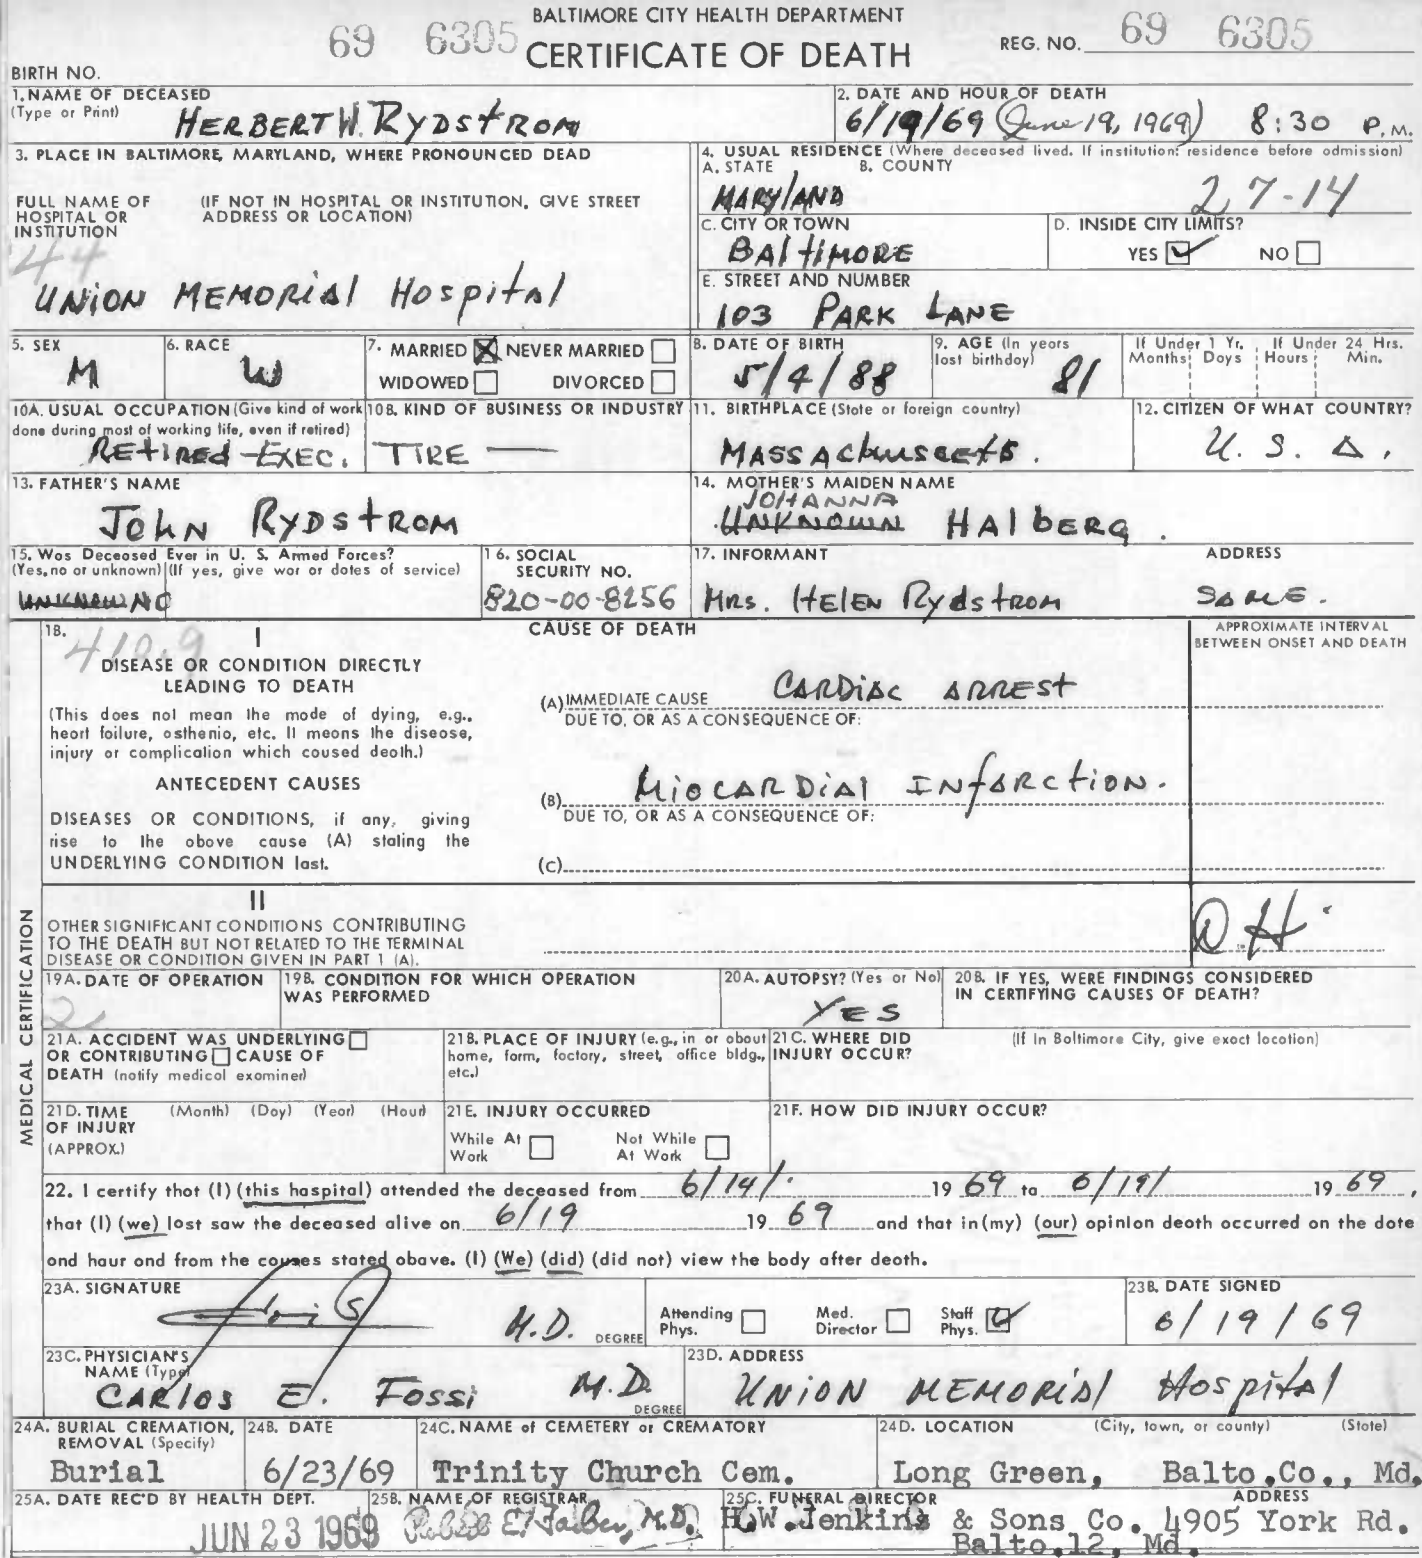 BALTIMORE CITY HEALTH DEPARTMENT
69 6305 CERTIFICATE OF DEATH REG. NO. 69 6305
BIRTH NO.
1. NAME OF DECEASED
(Type or Print)
HERBERT W. RYDSTROM
2. DATE AND HOUR OF DEATH
6/19/69 (June 19, 1969) 8:30 P.M.
3. PLACE IN BALTIMORE, MARYLAND, WHERE PRONOUNCED DEAD
FULL NAME OF HOSPITAL OR INSTITUTION
(IF NOT IN HOSPITAL OR INSTITUTION, GIVE STREET ADDRESS OR LOCATION)
44
UNION MEMORIAL HospitAl
4. USUAL RESIDENCE (Where deceased lived. If institution: residence before admission)
A. STATE B. COUNTY
MARYlAND 27-14
C. CITY OR TOWN
BAltIMORE
D. INSIDE CITY LIMITS?
YES NO
E. STREET AND NUMBER
103 PARK LANE
5. SEX
M
6. RACE
W
7. MARRIED NEVER MARRIED
WIDOWED DIVORCED
8. DATE OF BIRTH
5/4/88
9. AGE (In years last birthday)
81
If Under 1 Yr. If Under 24 Hrs.
Months Days Hours Min.
10A. USUAL OCCUPATION (Give kind of work done during most of working life, even if retired)
REtIRed-EXEC.
10B. KIND OF BUSINESS OR INDUSTRY
TIRE —
11. BIRTHPLACE (State or foreign country)
MASSAchuscEtts.
12. CITIZEN OF WHAT COUNTRY?
U. S. A.
13. FATHER'S NAME
JOhN RYDStROM
14. MOTHER'S MAIDEN NAME
JOHANNA
UNKNOWN HAlbERG.
15. Was Deceased Ever in U. S. Armed Forces?
(Yes, no or unknown) (If yes, give war or dates of service)
UNKNOWN NO
16. SOCIAL SECURITY NO.
820-00-8256
17. INFORMANT ADDRESS
MRS. HElEN RydstROM SAME.
18. 410.9
I
DISEASE OR CONDITION DIRECTLY
LEADING TO DEATH
(This does not mean the mode of dying, e.g.,
heart failure, asthenia, etc. It means the disease,
injury or complication which caused death.)
ANTECEDENT CAUSES
DISEASES OR CONDITIONS, if any, giving
rise to the above cause (A) stating the
UNDERLYING CONDITION last.
CAUSE OF DEATH
APPROXIMATE INTERVAL
BETWEEN ONSET AND DEATH
(A) IMMEDIATE CAUSE CARDIAC ARREST
DUE TO, OR AS A CONSEQUENCE OF:
(B) MIOCARDIAl INfARCtION.
DUE TO, OR AS A CONSEQUENCE OF:
(C)
II
OTHER SIGNIFICANT CONDITIONS CONTRIBUTING
TO THE DEATH BUT NOT RELATED TO THE TERMINAL
DISEASE OR CONDITION GIVEN IN PART 1 (A).
MEDICAL CERTIFICATION
19A. DATE OF OPERATION
2
19B. CONDITION FOR WHICH OPERATION
WAS PERFORMED
20A. AUTOPSY? (Yes or No)
YES
20B. IF YES, WERE FINDINGS CONSIDERED
IN CERTIFYING CAUSES OF DEATH?
21A. ACCIDENT WAS UNDERLYING
OR CONTRIBUTING CAUSE OF
DEATH (notify medical examiner)
21B. PLACE OF INJURY (e.g., in or about
home, farm, factory, street, office bldg.,
etc.)
21C. WHERE DID (If In Baltimore City, give exact location)
INJURY OCCUR?
21D. TIME (Month) (Day) (Year) (Hour)
OF INJURY
(APPROX.)
21E. INJURY OCCURRED
While At Work Not While At Work
21F. HOW DID INJURY OCCUR?
22. I certify that (I) (this hospital) attended the deceased from 6/14/ 19 69 to 6/19/ 19 69,
that (I) (we) last saw the deceased alive on 6/19 19 69 and that in (my) (our) opinion death occurred on the date
and hour and from the causes stated above. (I) (We) (did) (did not) view the body after death.
23A. SIGNATURE
M.D. DEGREE
Attending Phys. Med. Director Staff Phys.
23B. DATE SIGNED
6/19/69
23C. PHYSICIAN'S
NAME (Type)
CARlOS E. FOSSi M.D. DEGREE
23D. ADDRESS
UNION MEMORIAl HospitAl
24A. BURIAL CREMATION, REMOVAL (Specify)
Burial
24B. DATE
6/23/69
24C. NAME of CEMETERY or CREMATORY
Trinity Church Cem.
24D. LOCATION (City, town, or county) (State)
Long Green, Balto.Co., Md.
25A. DATE REC'D BY HEALTH DEPT.
JUN 23 1969
25B. NAME OF REGISTRAR
Robert E. Farber, M.D.
25C. FUNERAL DIRECTOR ADDRESS
H.W.Jenkins & Sons Co. 4905 York Rd.
Balto.12, Md.